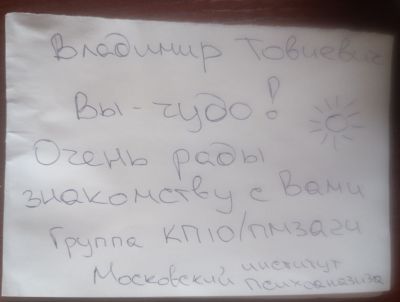 Владимир Товиевич
Вы - чудо!
Очень рады
знакомству с Вами
Группа КП10/ПМЗАГИ
Московский институт
психоанализа